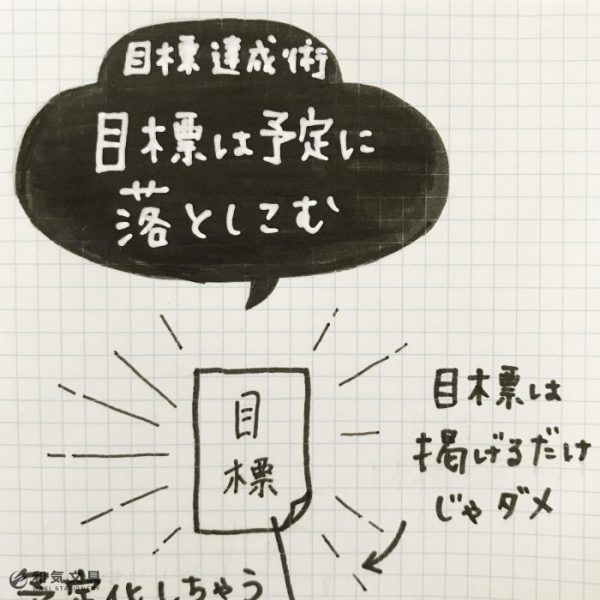 目標達成術
目標は予定に
落としこむ
目
標
目標は
掲げるだけ
じゃダメ
予定化しちゃう
和気文具